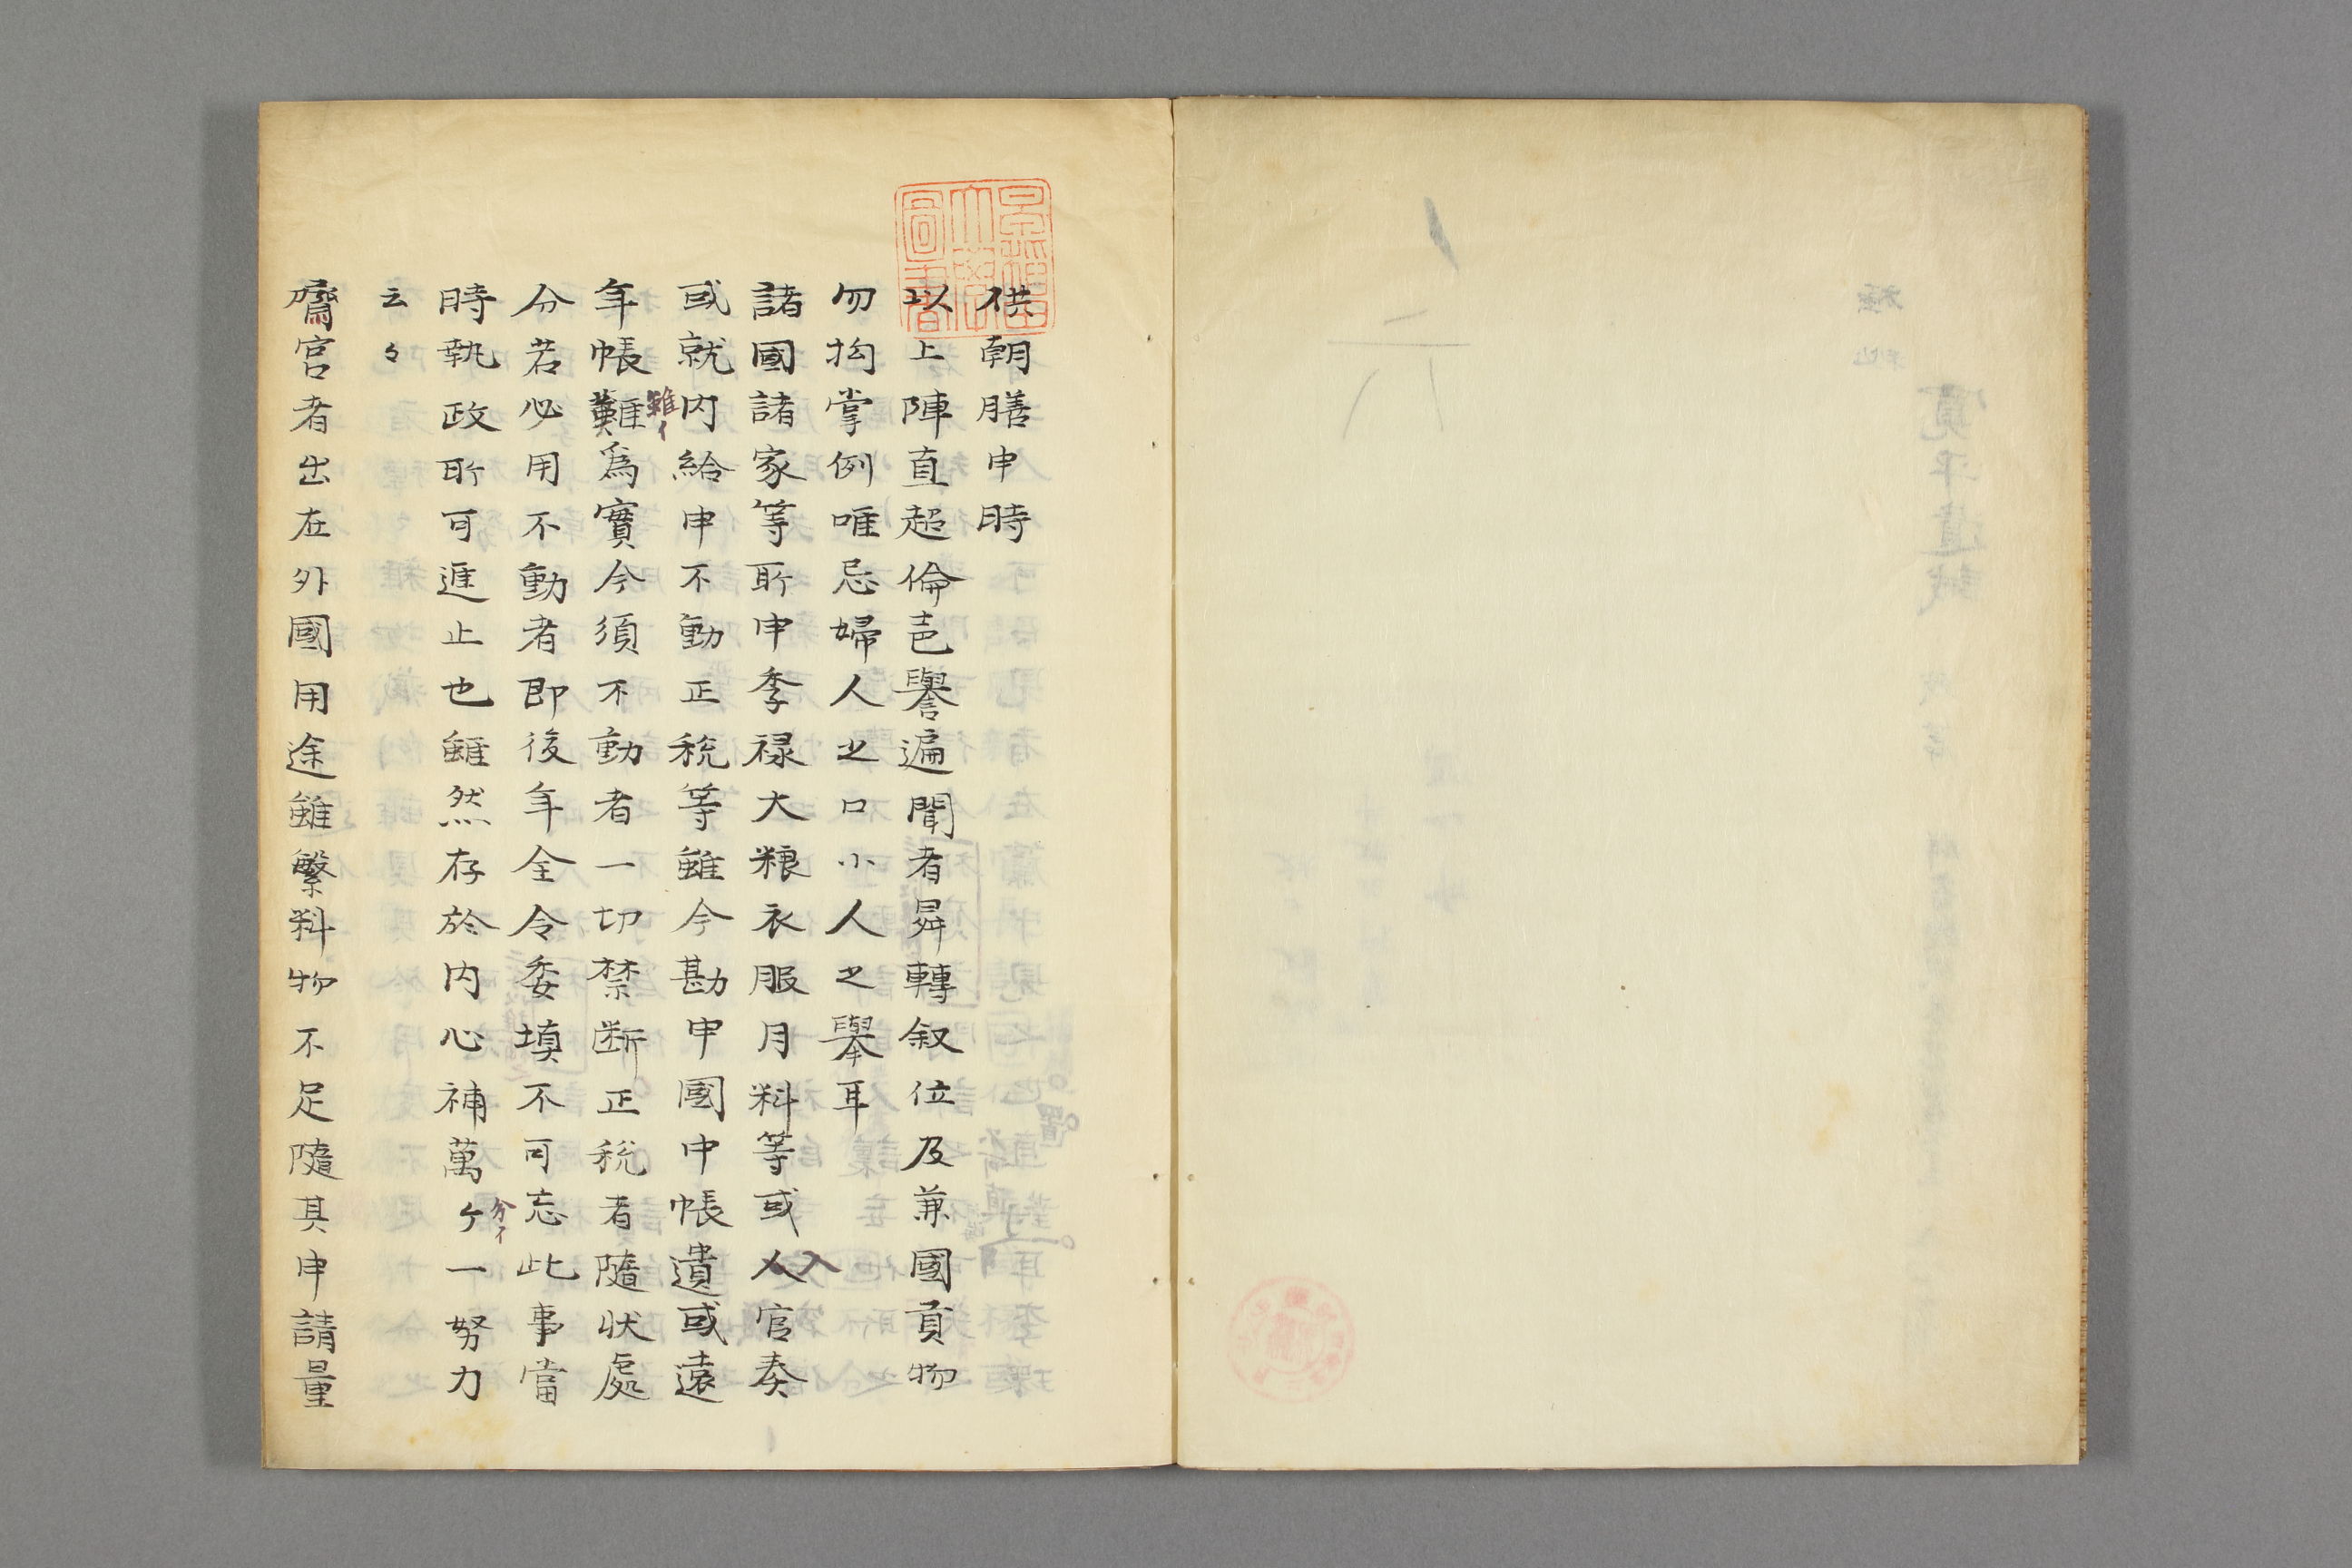 供朝膳申時
以上陣直超倫邑譽遍聞者舁轉叙位及兼國貢物
勿拘掌例唯忌婦人之口小人之擧耳
諸國諸家等所申季禄大粮衣服月料等或入官奏
入
或就内給申不動正税等雖今勘申國中帳遺或遠
雖イ
年帳難爲實今須不動者一切禁断正税者隨状處
分若必用不動者即後年全令委填不可忘此事當
分イ
時執政所可進止也雖然存於内心補萬ケ一努力
云々
齋宮者出在外國用途雖繁料物不足隨其申請量
景福大學圖書
寛平遺誡